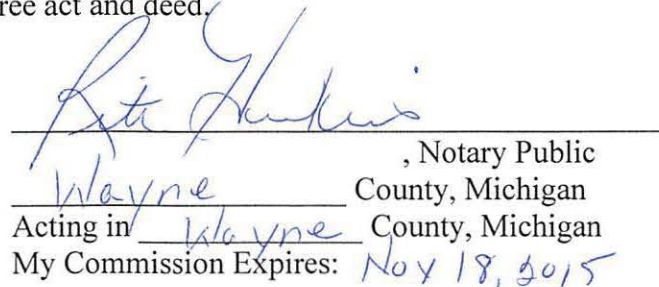 ree act and deed.
Rita
, Notary Public
Wayne County, Michigan
Acting in Wayne County, Michigan
My Commission Expires: Nov 18, 2015